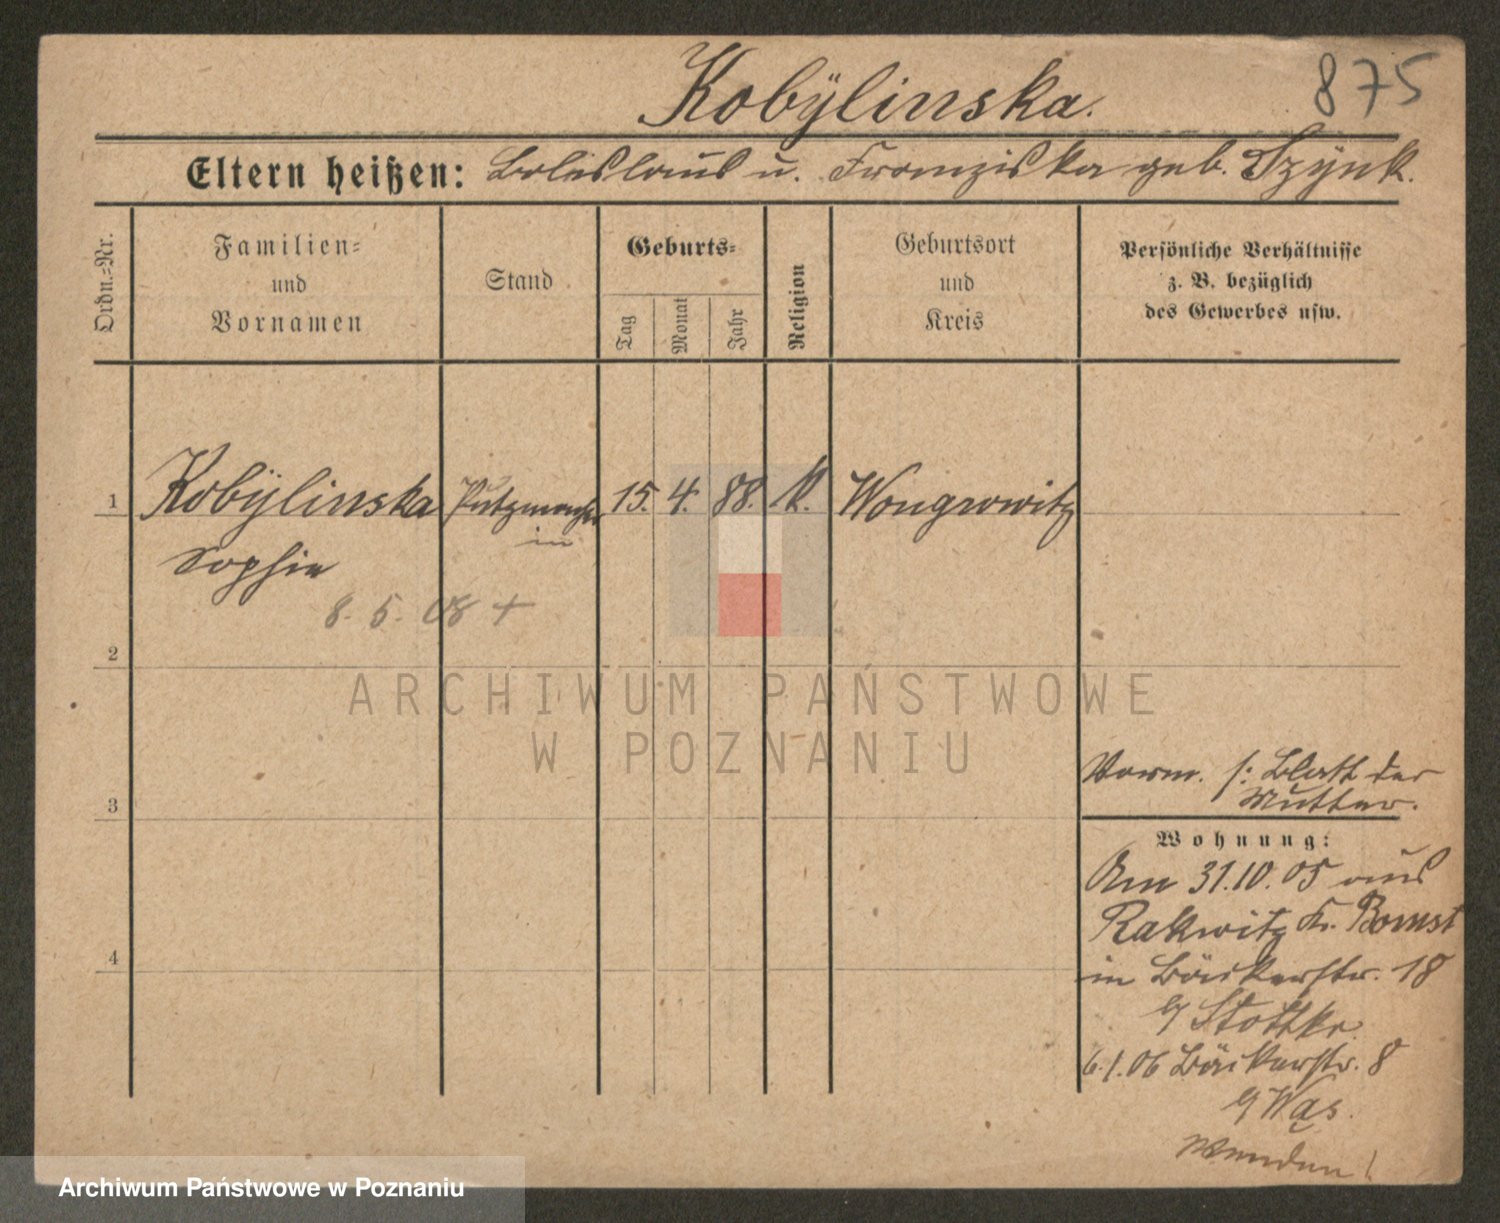 Kobÿlinska.
875
Eltern heißen: Boleslaus u. Franziska geb. Szÿnk.
Ordn.=Nr.
Familien=
und
Vornamen
Stand
Geburts=
Tag
Monat
Jahr
Religion
Geburtsort
und
Kreis
Persönliche Verhältnisse
z. B. bezüglich
des Gewerbes usw.
1 Kobÿlinska Putzmacher 15. 4. 88. k. Wongrowitz
in
Sophie
8. 5. 08 +
2
ARCHIWUM PAŃSTWOWE
W POZNANIU
Vorm. s: Blatt der
Mutter.
3
Wohnung:
Am 31.10.05 aus
Rakwitz Kr. Bomst
4
in Bäckerstr. 18
b/ Stottke
6.1.06 Bäckerstr. 8
b/ Wąs.
Wenden!
Archiwum Państwowe w Poznaniu